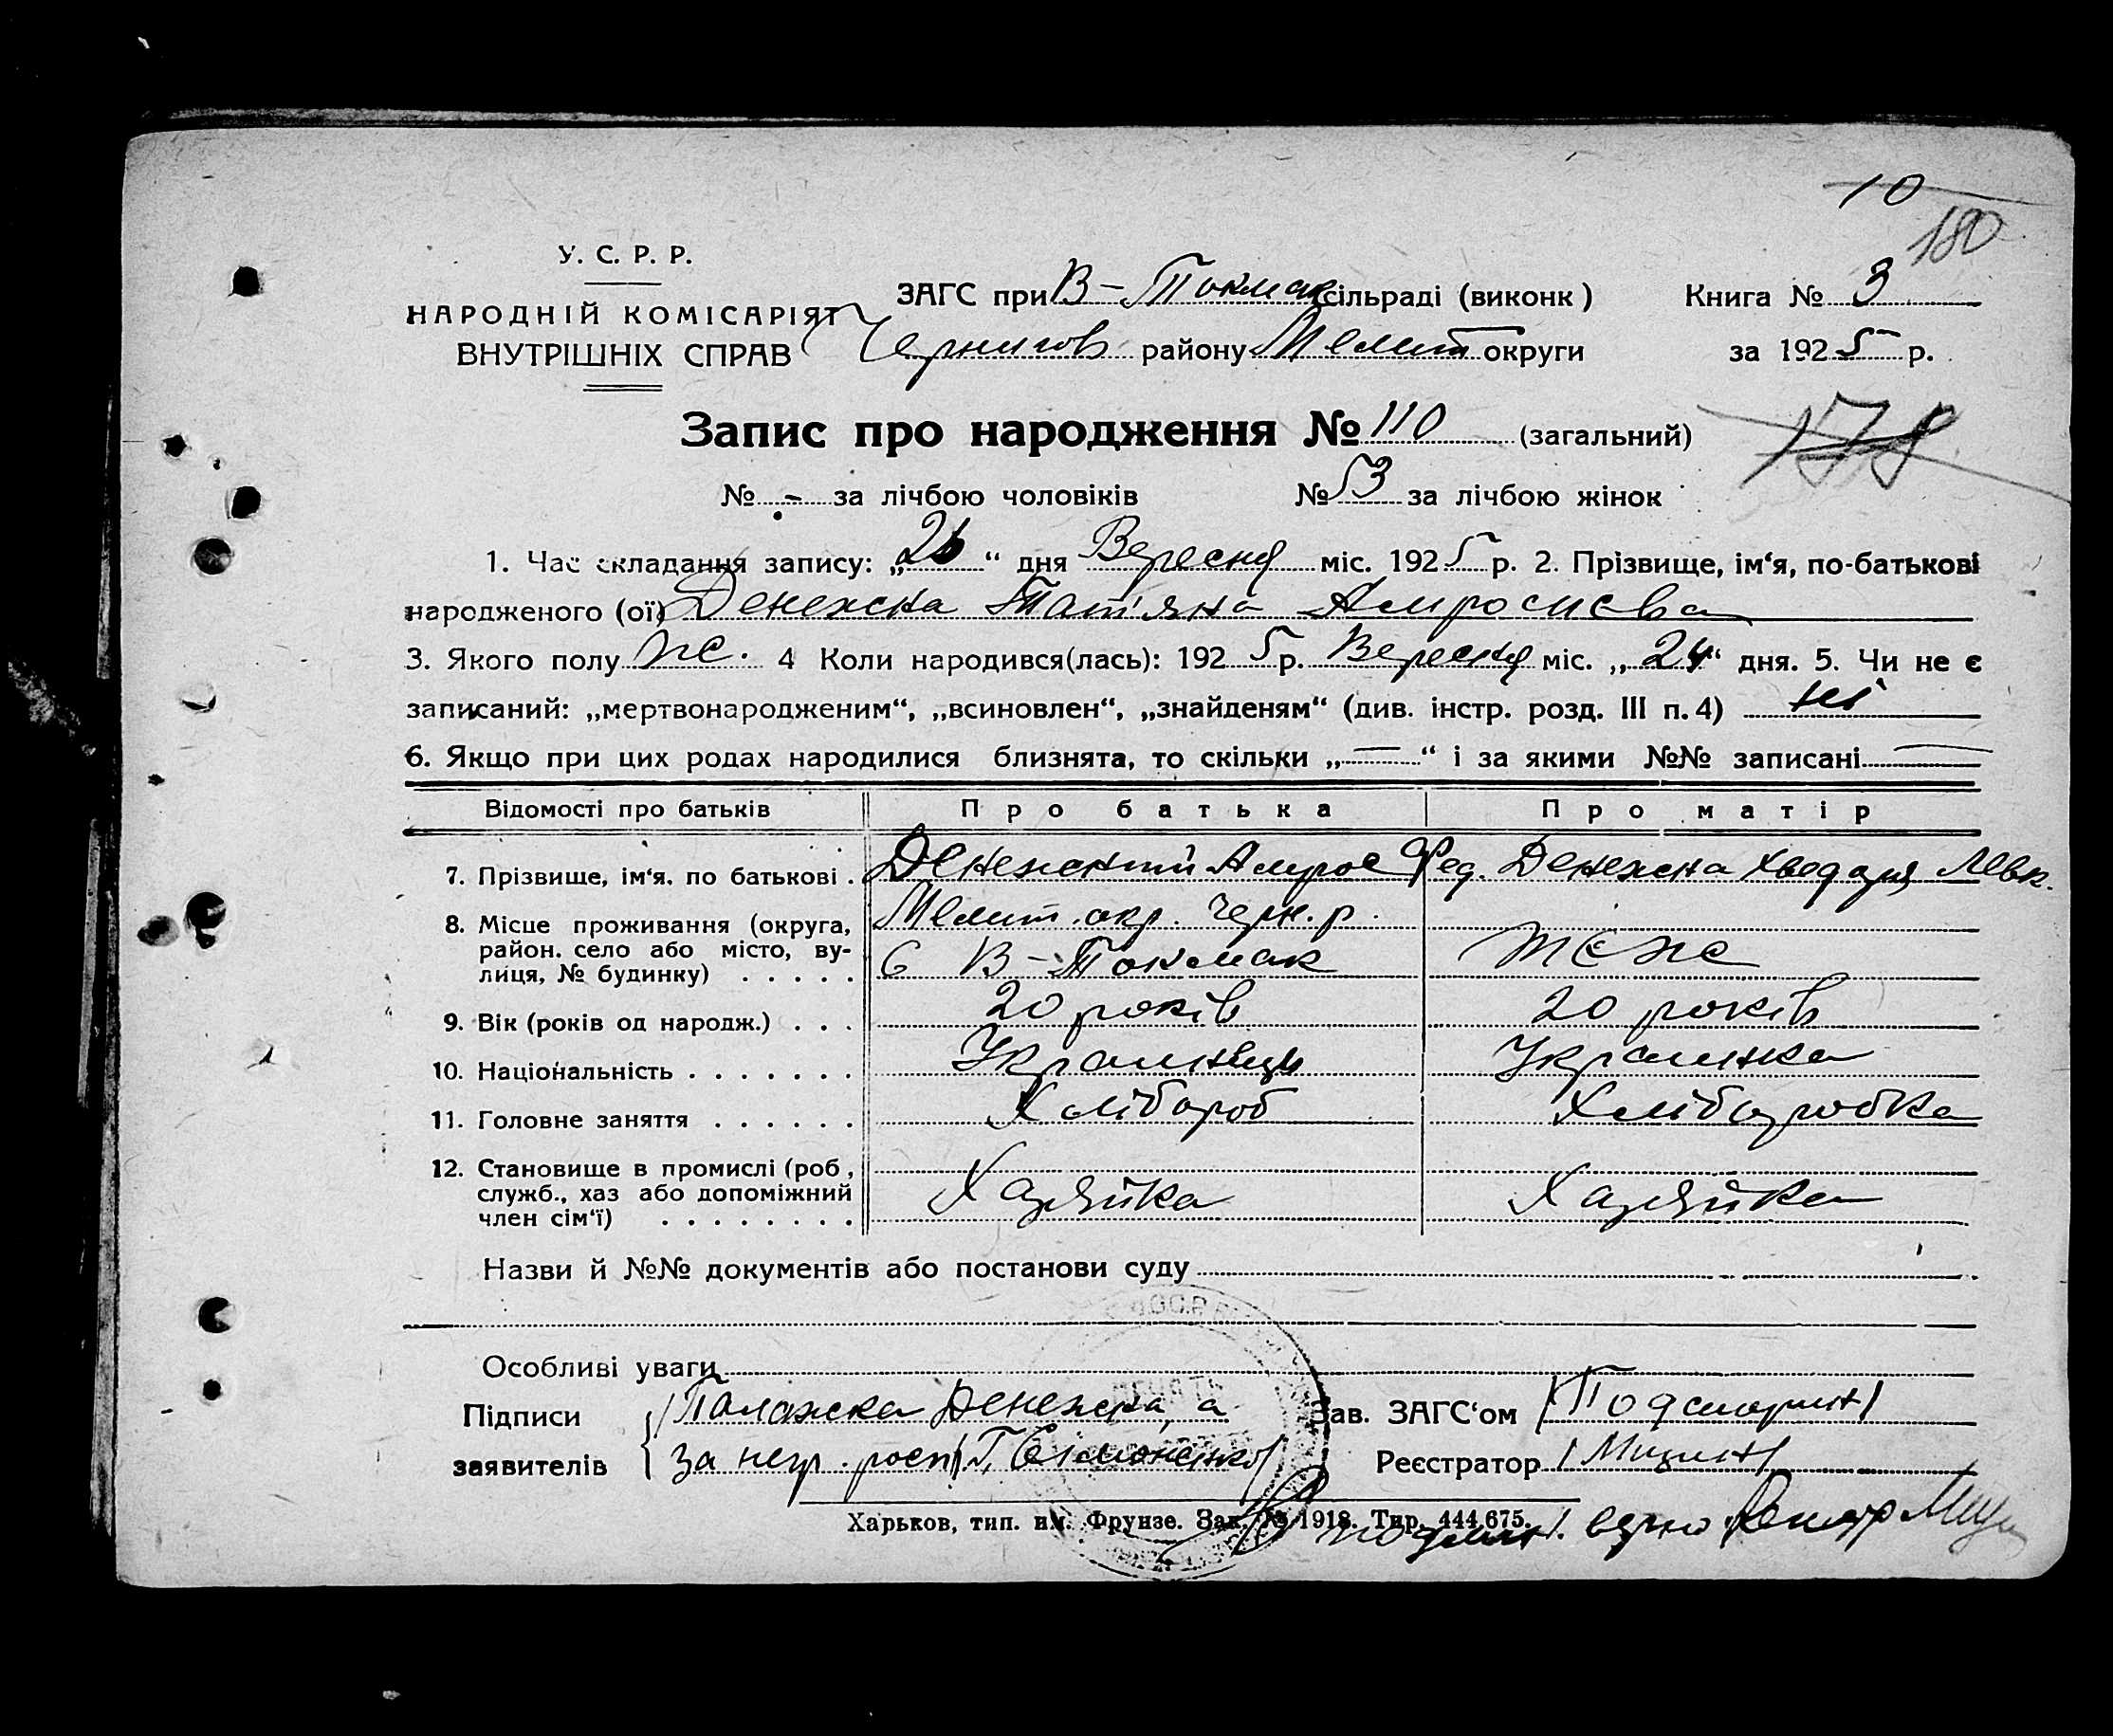 10
180
У. С. Р. Р.
НАРОДНІЙ КОМІСАРІЯТ
ВНУТРІШНІХ СПРАВ
ЗАГС при В-Токмак сільраді (виконк) Книга № 3
Чернигов району Мелит округи за 1925 р.
Запис про народження № 110 (загальний)
178
№ - за лічбою чоловіків № 53 за лічбою жінок
1. Час складання запису: „26“ дня Вересня міс. 1925 р. 2. Прізвище, ім‘я, по-батькові
народженого (ої) Денежна Тат'яна Амросиева
3. Якого полу жс. 4 Коли народився(лась): 1925 р. Вересня міс. „24“ дня. 5. Чи не є
записаний: „мертвонародженим“, „всиновлен“, „знайденям“ (див. інстр. розд. III п. 4) ні
6. Якщо при цих родах народилися близнята, то скільки „—“ і за якими №№ записані —
Відомості про батьків Про батька Про матір
7. Прізвище, ім‘я, по батькові . Денежний Амрос Фед. Денежна Хведора Левк.
8. Місце проживання (округа, район. село або місто, ву-лиця, № будинку) . . . . . Мелит. окр. Черн. р.
с В-Токмак теже
9. Вік (років од народж.) . . . 20 років 20 років
10. Національність . . . . . . . Українець Українка
11. Головне заняття . . . . . . Хлібороб Хліборобка
12. Становище в промислі (роб, служб., хаз або допоміжний член сім‘ї) . . . . . . . . Хазяйка Хазяйка
Назви й №№ документів або постанови суду
Особливі уваги
Підписи Палажка Денежна, а Зав. ЗАГС‘ом
заявителів за негр. росп. Г. Симоненко Реєстратор
Харьков, тип. им. Фрунзе. Зак. № 1918. Тир. 444.675.
верно